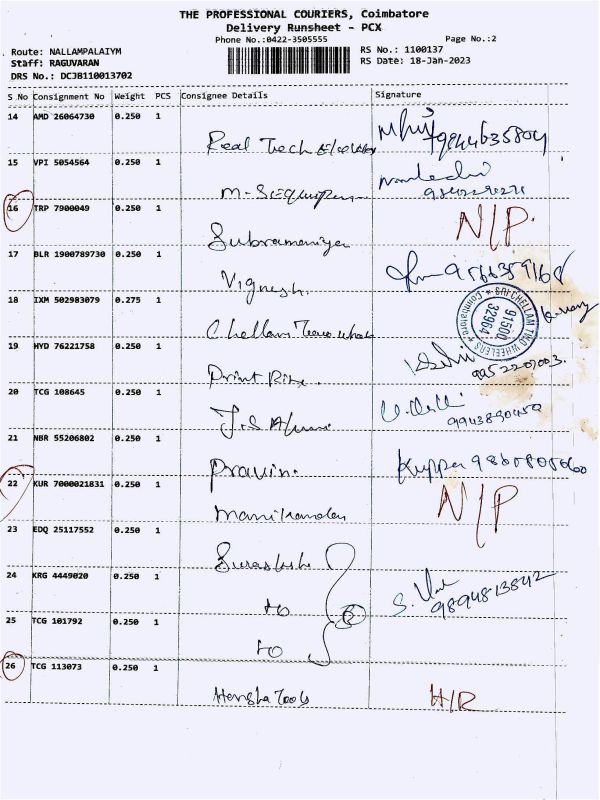 THE PROFESSIONAL COURIERS, Coimbatore
Delivery Runsheet - PCX
Phone No.:0422-3505555
Page No.:2
Route: NALLAMPALAIYM
RS No.: 1100137
Staff: RAGUVARAN
RS Date: 18-Jan-2023
DRS No.: DCJB110013702
S No Consignment No Weight PCS Consignee Details Signature
14 AMD 26064730 0.250 1
Real Tech
15 VPI 5054564 0.250 1
16 TRP 7900049 0.250 1 N/P.
Subramaniyan
17 BLR 1900789730 0.250 1
Vignesh.
18 IXM 502983079 0.275 1
SRI CHELLAM TWO WHEELERS * Coimbatore *
91500
32964
Chellam
19 HYD 76221758 0.250 1
Print Rite.
20 TCG 108645 0.250 1
J.S
21 NBR 55206802 0.250 1
Pravin.
22 KUR 7000021831 0.250 1 N/P
Manikandan
23 EDQ 25117552 0.250 1
24 KRG 4449020 0.250 1
9894813842
to
25 TCG 101792 0.250 1
to
26 TCG 113073 0.250 1
Tools H/R